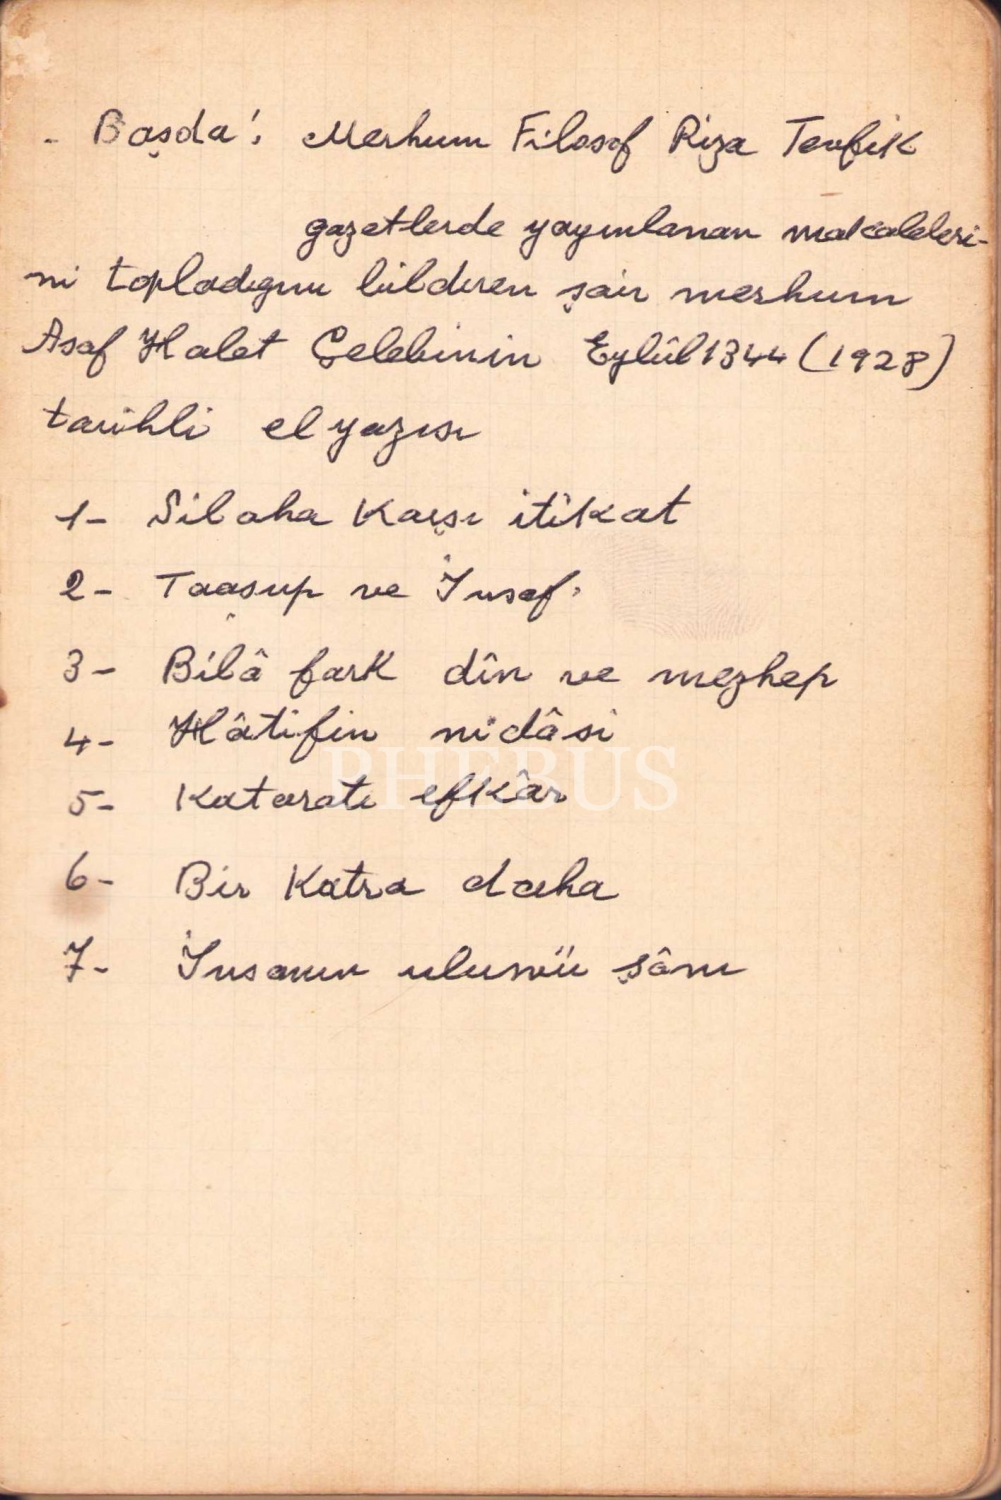 - Başda: Merhum Filosof Riza Tevfik
gazetlerde yayınlanan makaleleri-
ni topladığını bildiren şair merhum
Asaf Halet Çelebinin Eylûl 1344 (1928)
tarihli el yazısı
1- Silaha Karşı itikat
2- Taasup ve İnsaf.
3- Bilâ fark dîn ve mezhep
4- Hâtifin nidâsi
PHEBUS
5- Kataratı efkâr
6- Bir Katra daha
7- İnsanın ulüvvü şânı